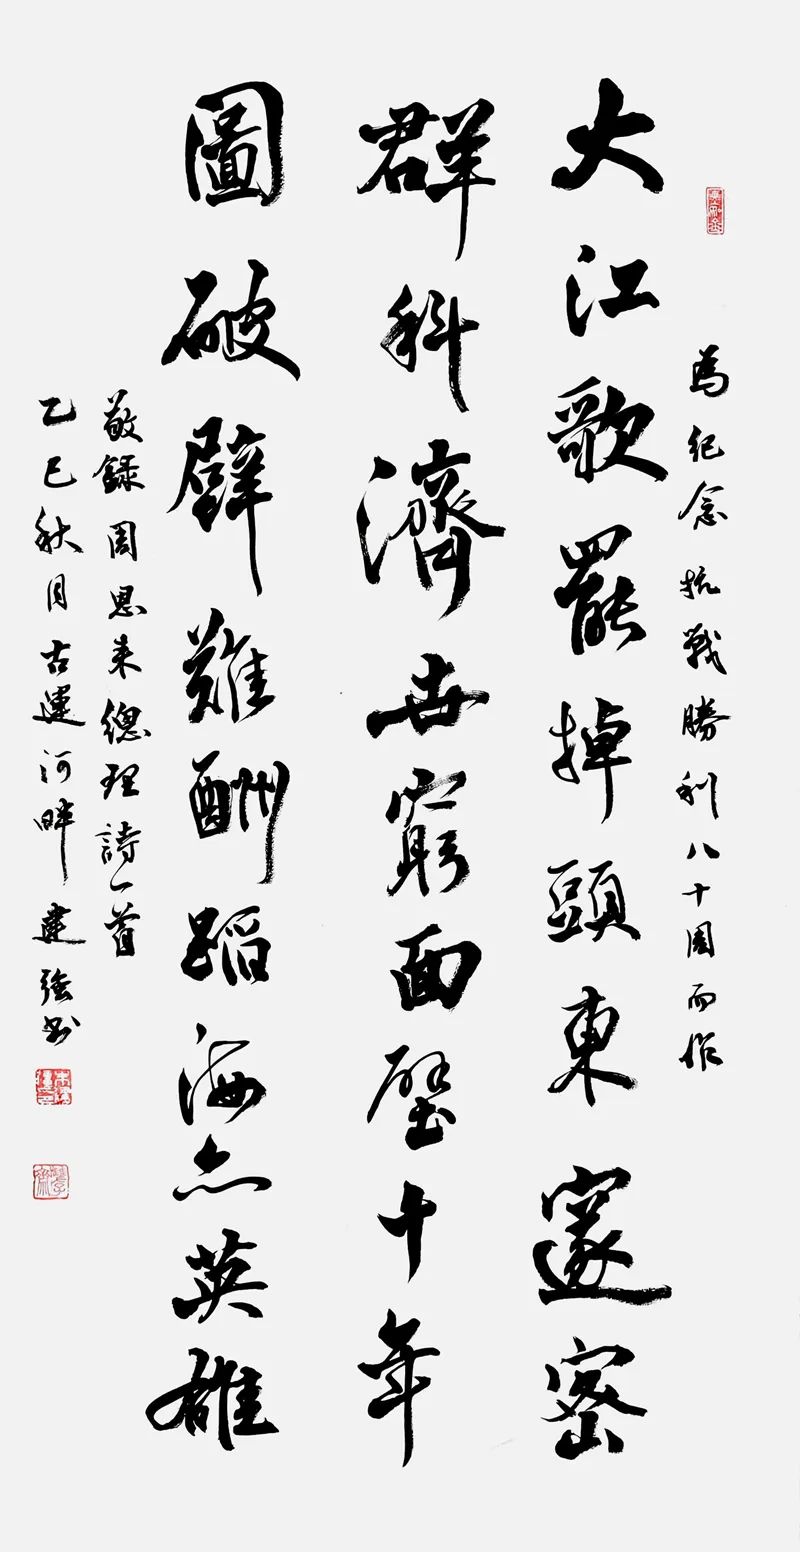 為紀念抗戰勝利八十周而作
大江歌罷掉頭東邃密
群科濟世窮面壁十年
圖破壁難酬蹈海亦英雄
敬錄周恩来總理詩一首
乙巳秋月古運河畔建強书